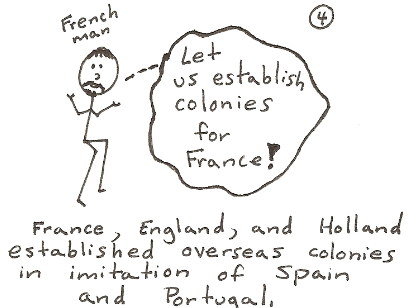 French
man
4
Let
us establish
colonies
for
France!
France, England, and Holland
established overseas colonies
in imitation of Spain
and Portugal.